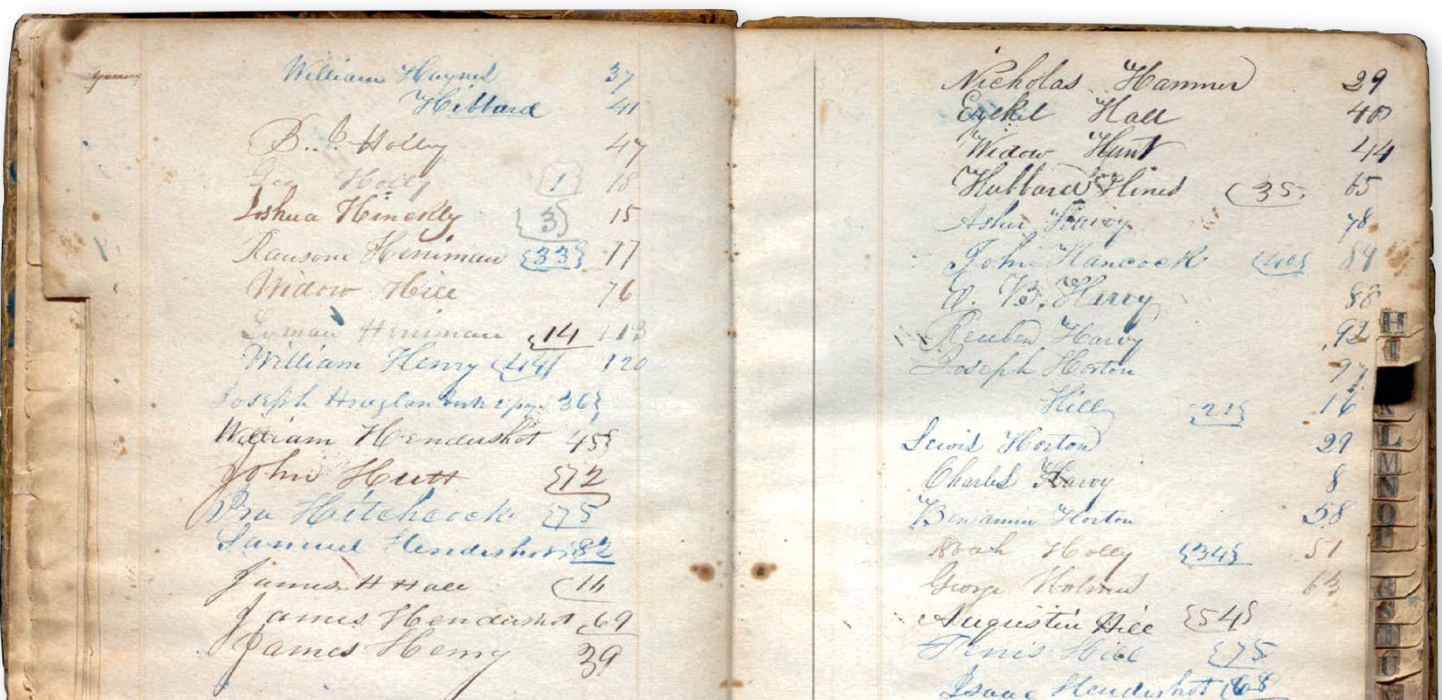 William Haynes 37
Hibbard 41
B. J. Holly 47
Geo Holly {1} 18
Joshua Hinckly {3} 15
Ransom Heniman {33} 77
Widow Hill 76
Luman Heniman {14 113
William Henry {44} 120
Joseph 36}
William Hendershot 45}
John Hutt {72
Ira Hitchcock {75
Samuel Hendershot {82
James H Hall (16
James Hendershot 69
James Henry 39
Nicholas Hammer 29
Ezekel Hall 40
Widow Hunt 44
Hubbard Hines (35 65
Asher Harvy 78
John Hancock (40} 84
B. Harvy 88
Reuben Harvy 92
Joseph Horton 97
Hill {21} 16
Lewis Horton 29
Charles Harvy 8
Benjamin Horton 58
Noah Holly {34} 51
George Holmes 63
Augustin Hill {54}
Hill {75
Isaac Hendershot (68
H
I
K
L
M
N
O